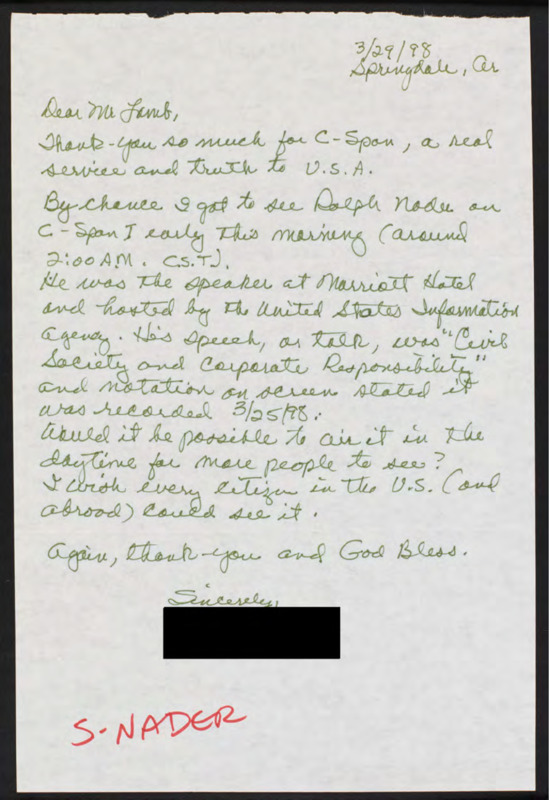 3/29/98
Springdale, Ar
Dear Mr Lamb,
Thank-you so much for C-Span, a real
service and truth to U.S.A.
By chance I got to see Ralph Nader on
C-Span I early this morning (around
2:00 A.M. C.S.T.).
He was the speaker at Marriott Hotel
and hosted by the United States Information
Agency. His speech, or talk, was "Civil
Society and Corporate Responsibility"
and notation on screen stated it
was recorded 3/25/98.
Would it be possible to air it in the
daytime for more people to see?
I wish every citizen in the U.S. (and
abroad) could see it.
Again, thank-you and God Bless.
Sincerely,
S-NADER